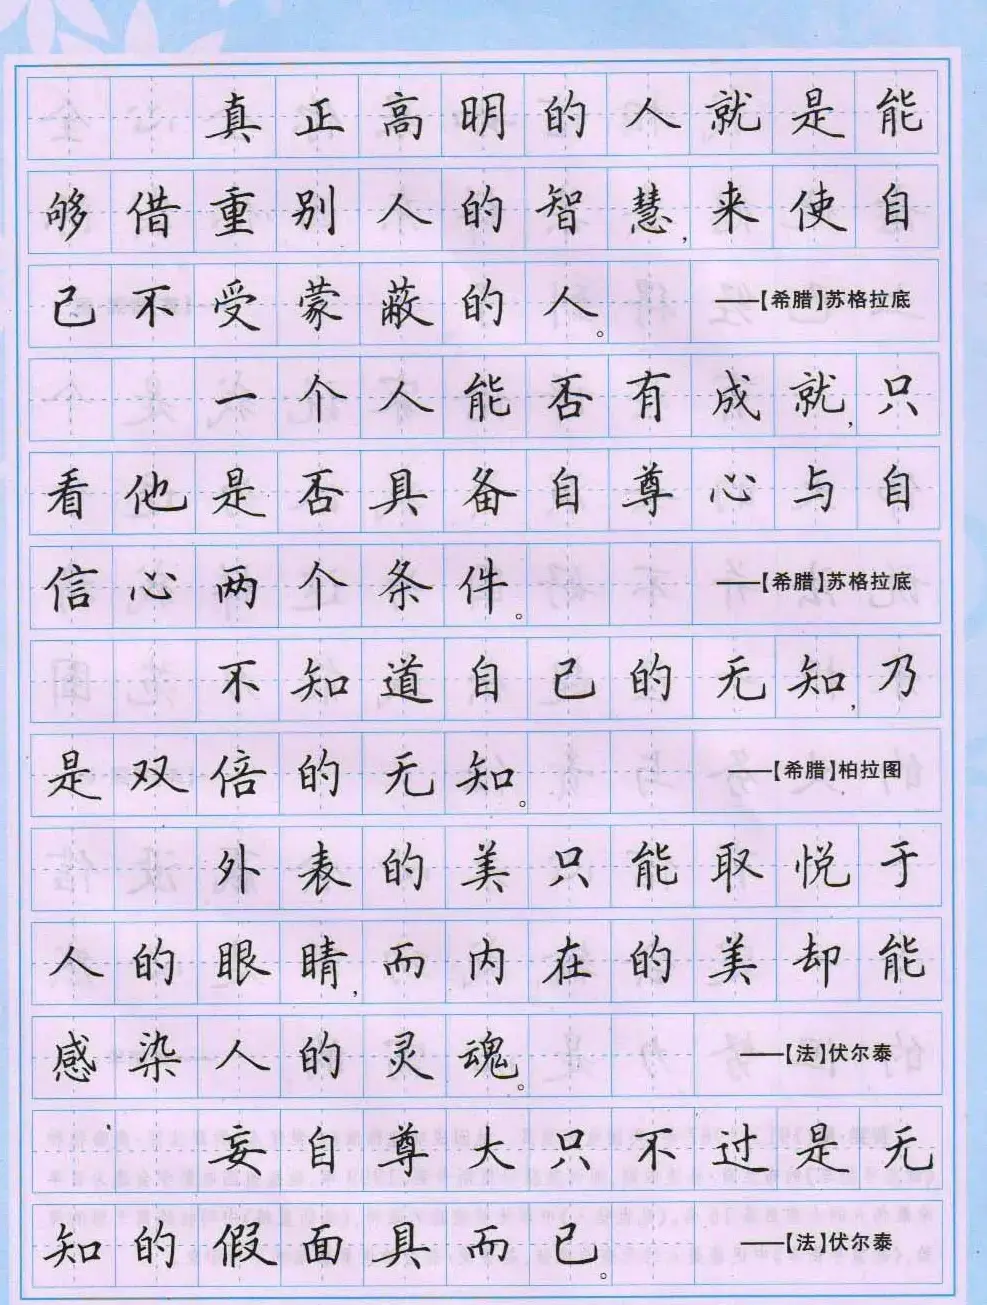 真正高明的人就是能
够借重别人的智慧,来使自
己不受蒙蔽的人。 ——【希腊】苏格拉底
一个人能否有成就,只
看他是否具备自尊心与自
信心两个条件。 ——【希腊】苏格拉底
不知道自己的无知,乃
是双倍的无知。 ——【希腊】柏拉图
外表的美只能取悦于
人的眼睛,而内在的美却能
感染人的灵魂。 ——【法】伏尔泰
妄自尊大只不过是无
知的假面具而已。 ——【法】伏尔泰